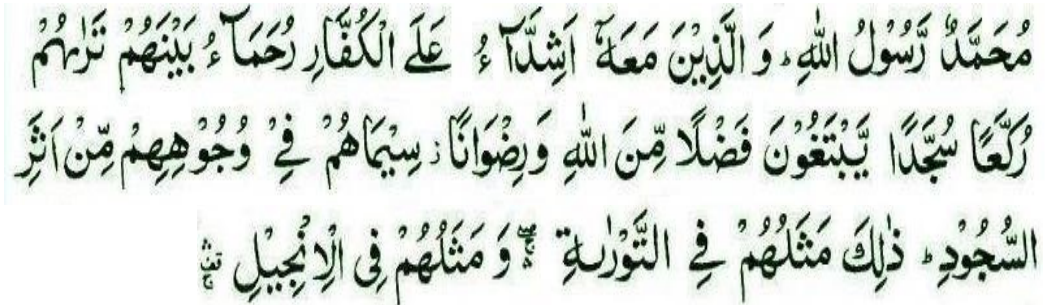 مُحَمَّدٌ رَّسُوْلُ اللّٰهِ ؕ وَ الَّذِیْنَ مَعَهٗۤ اَشِدَّآءُ عَلَی الْكُفَّارِ رُحَمَآءُ بَیْنَهُمْ تَرٰىهُمْ
رُكَّعًا سُجَّدًا یَّبْتَغُوْنَ فَضْلًا مِّنَ اللّٰهِ وَرِضْوَانًا ؗ سِیْمَاهُمْ فِیْ وُجُوْهِهِمْ مِّنْ اَثَرِ
السُّجُوْدِ ؕ ذٰلِكَ مَثَلُهُمْ فِی التَّوْرٰىةِ ۛۖۚ وَ مَثَلُهُمْ فِی الْاِنْجِیْلِ ۛ۫ۚ